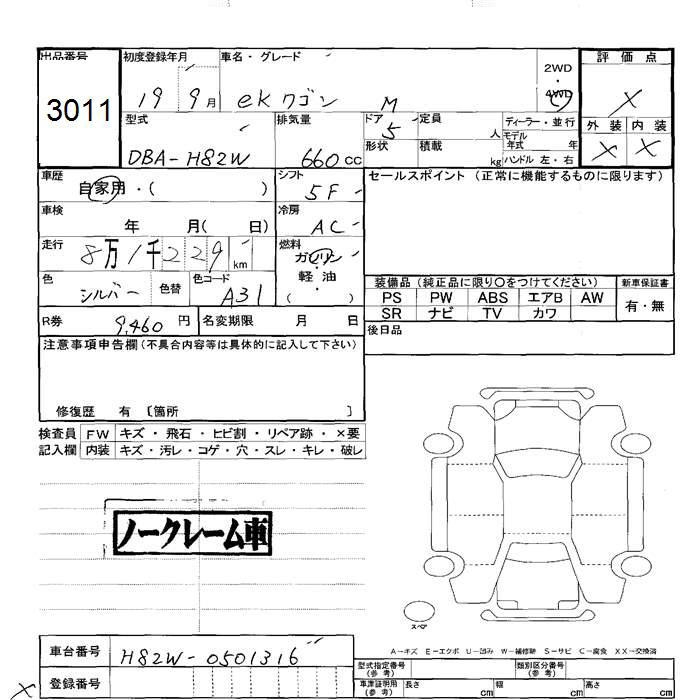 出品番号 初度登録年月 車名・グレード 2WD・4WD 評価点
3011 19 9月 ekワゴン M X
型式 排気量 ドア 定員 ディーラー・並行 外装 内装
DBA-H82W 660cc 5 人 モデル年式 年 X X
形状 積載 kg ハンドル 左・右
車歴 自家用・( ) シフト 5F セールスポイント (正常に機能するものに限ります)
車検 年 月( 日) 冷房 AC
走行 8万1千229km 燃料 ガソリン・軽油( )
色 シルバー 色替 色コード A31
装備品 (純正品に限り○をつけてください) 新車保証書
PS PW ABS エアB AW 有・無
SR ナビ TV カワ
R券 9,460円 名変期限 月 日 後日品
注意事項申告欄(不具合内容等は具体的に記入して下さい)
修復歴 有 〔箇所 〕
検査員 FW キズ・飛石・ヒビ割・リペア跡・×要
記入欄 内装 キズ・汚レ・コゲ・穴・スレ・キレ・破レ
ノークレーム車
スペア
A－キズ E－エクボ U－凹み W－補修跡 S－サビ C－腐食 XX－交換済
車台番号 H82W-0501316
登録番号
型式指定番号(参考) 類別区分番号(参考)
車庫証明用(参考) 長さ cm 幅 cm 高さ cm
X